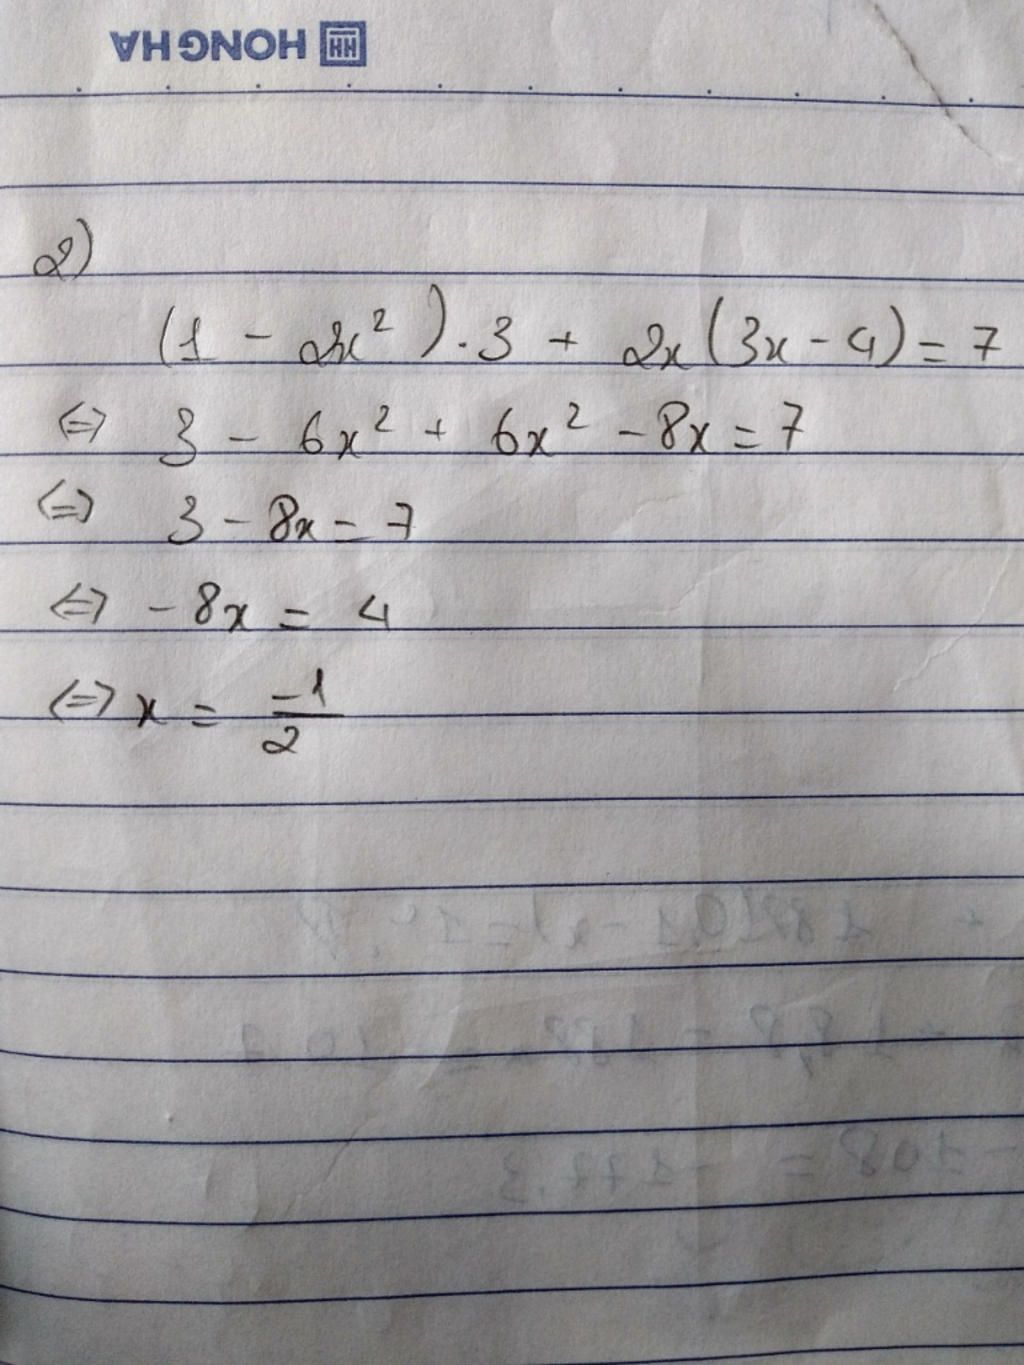 HONG HA
2)
(1 - 2x²).3 + 2x(3x-4) = 7
<=> 3 - 6x² + 6x² - 8x = 7
<=> 3 - 8x = 7
<=> - 8x = 4
<=> x = -1/2